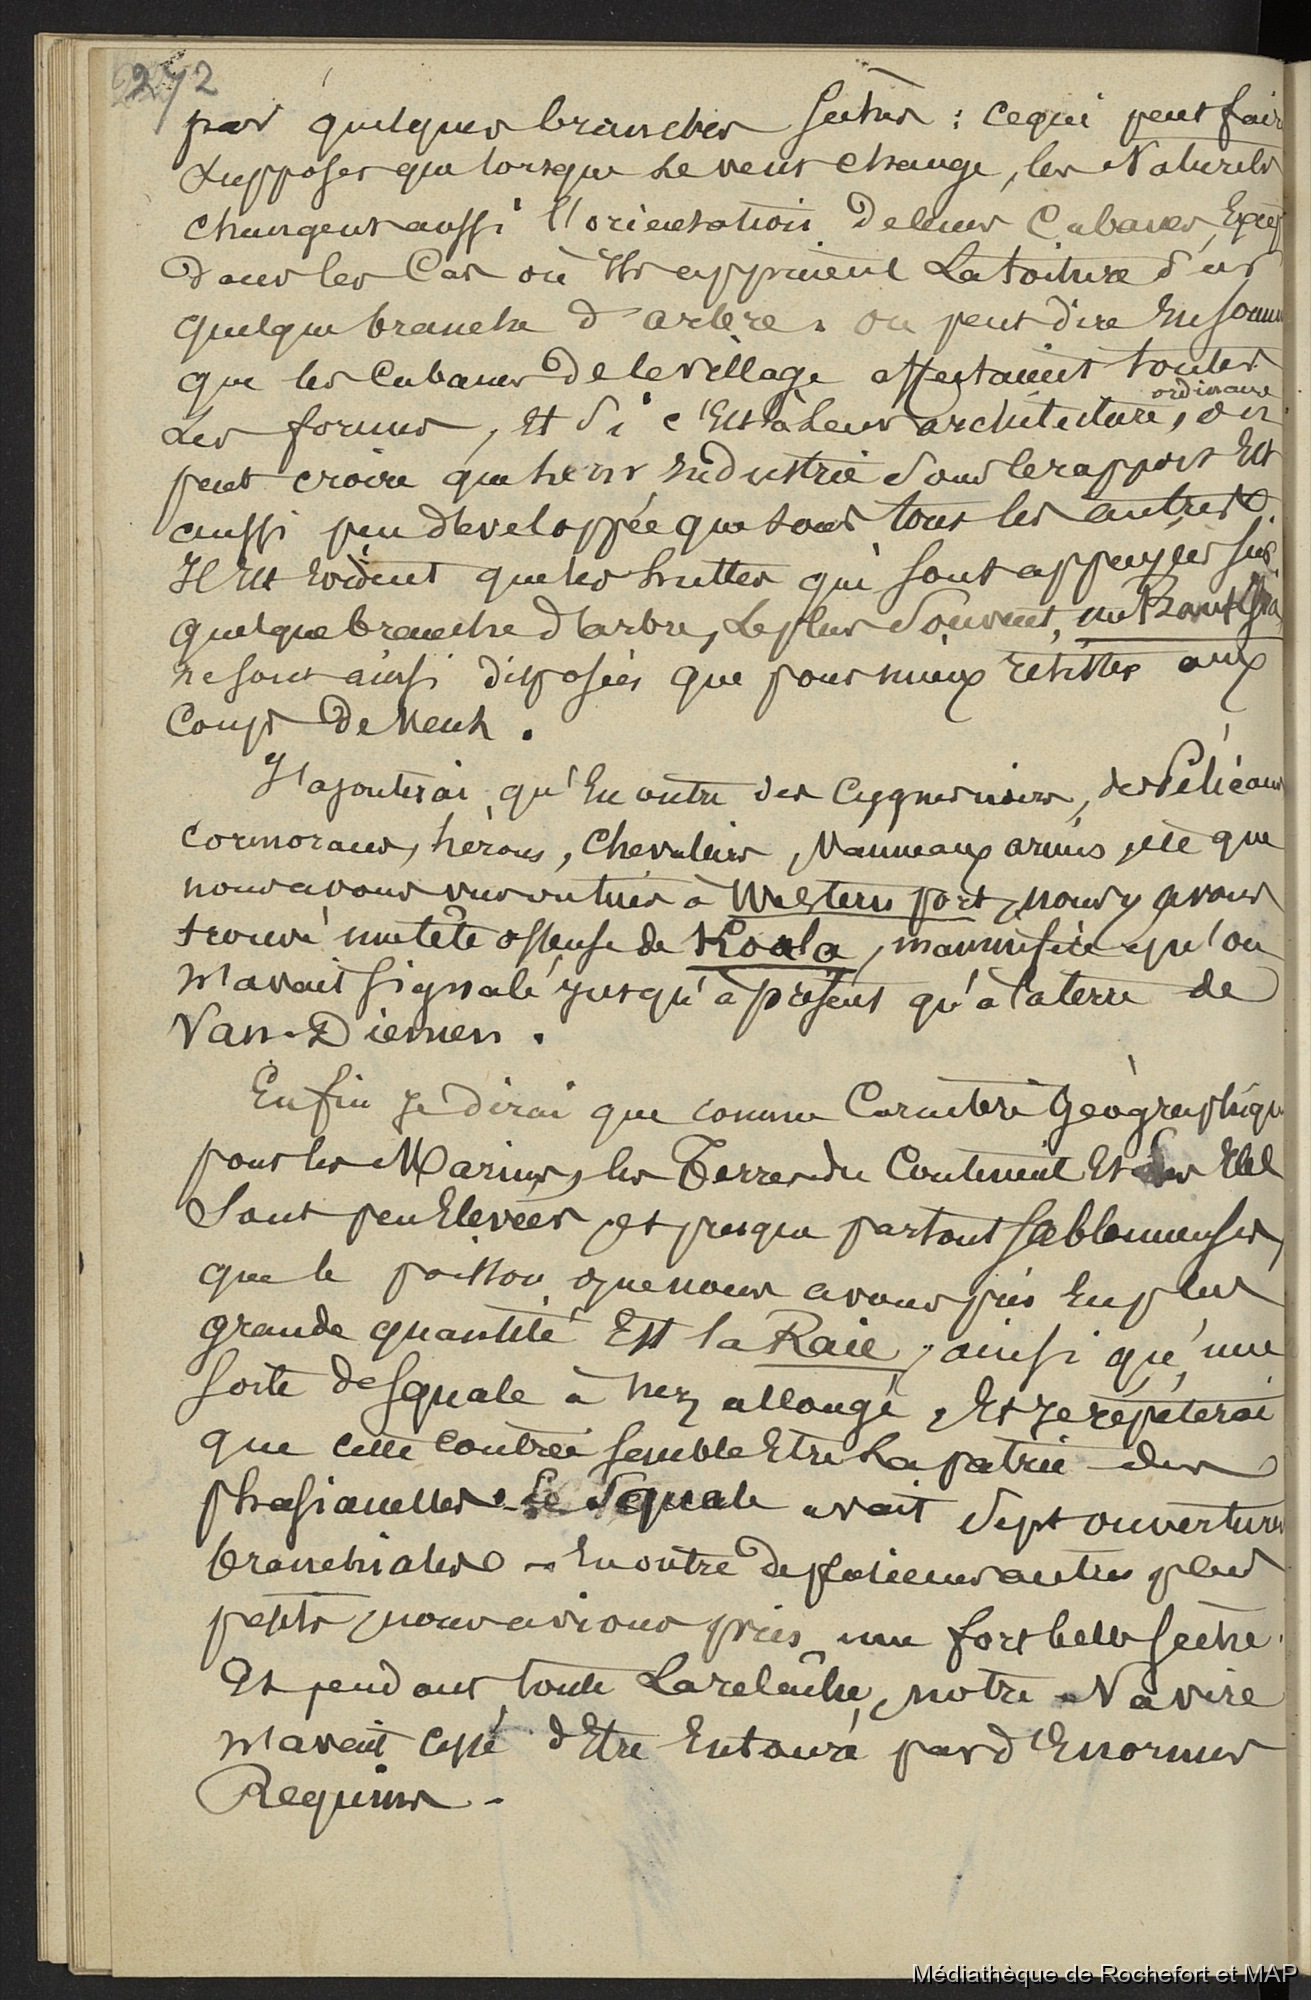 272
par quelques branches seches : ce qui peut fair
supposer que lorsque le vent change, les Naturels
changent aussi l'orientation de leurs Cabanes, Excep
dans les Cas où ils appuient La toiture sur
quelque branche d'arbre. on peut dire En somm
que les Cabanes de le village affectaient toutes
Les formes, Et si c'Est à Leur architecture ordinaire, on
peut croire que leur industrie sous le rapport Est
aussi peu développée que sous tous les autres.
Il Est Evident que les huttes qui sont appuyées sur
quelque branche d'arbre, Le plus souvent, un Banksia
ne sont ainsi disposées que pour mieux résister aux
Coups de Vent.
J'ajouterai qu'En outre des Cygnes noirs, des Pélicans
cormorans, hérons, Chevaliers, Vanneaux armés, etc que
nous avons vus ou tués à Western port, nous y avons
trouvé une tête osseuse de Koala, mammifère qu'on
n'avait signalé jusqu'à présent qu'à la terre de
Van-Diemen.
Enfin Je dirai que comme Caractère Géographiqu
pour les Marins, les Terres du Continent Et des Iles
sont peu Elevées, et presque partout sablonneuses,
que le poisson que nous avons pris En plus
grande quantité Est la Raie, ainsi qu'une
sorte de squale à nez allongé, Et Je répèterai
que cette contrée semble Etre La patrie des
phasianelles. Le Squale avait Sept ouvertures
branchiales - En outre de plusieurs autres plus
petits, nous avions pris une fort belle seche.
Et pendant toute La relâche, notre Navire
n'avait cessé d'Etre Entouré par d'Enormes
Requins -
Médiathèque de Rochefort et MAP